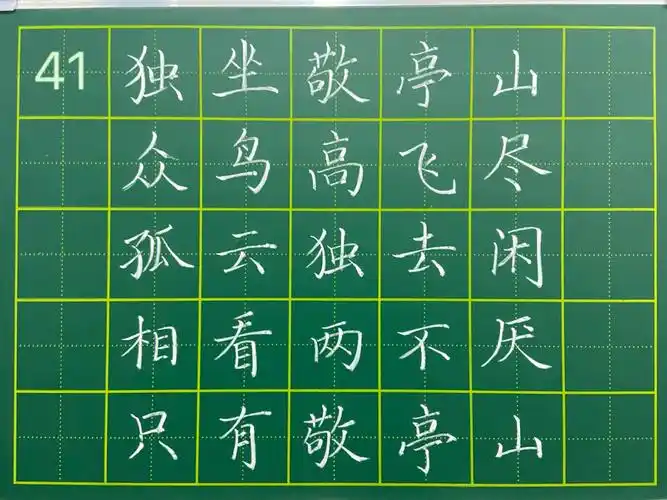 41 独坐敬亭山
众鸟高飞尽
孤云独去闲
相看两不厌
只有敬亭山